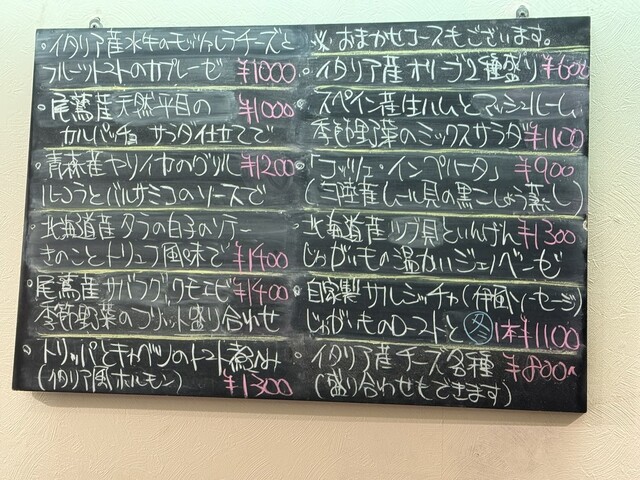 ・イタリア産水牛のモッツァレラチーズと
フルーツトマトのカプレーゼ ¥1000
・尾鷲産天然平目の ¥1000
カルパッチョ サラダ仕立てで
・青森産ヤリイカのグリル ¥1200
ルッコラとバルサミコのソースで
・北海道産タラの白子のソテー
きのことトリュフ風味で ¥1400
・尾鷲産サバラグ,ワモエビ ¥1400
季節野菜のフリット盛り合わせ
・トリッパとキャベツのトマト煮込み
(イタリア風ホルモン) ¥1300
※ おまかせコースもございます。
・イタリア産オリーブ2種盛り ¥600
・スペイン産生ハムとマッシュルーム
季節野菜のミックスサラダ ¥1100
・「コッツェ・インペパータ」 ¥900
(三陸産ムール貝の黒こしょう蒸し)
・北海道産ツブ貝といんげん ¥1300
じゃがいもの温かいジェノベーゼ
・自家製サルシッチャ(伊風ソーセージ)
じゃがいものローストと 1本¥1100
・イタリア産チーズ各種 ¥800~
(盛り合わせもできます)